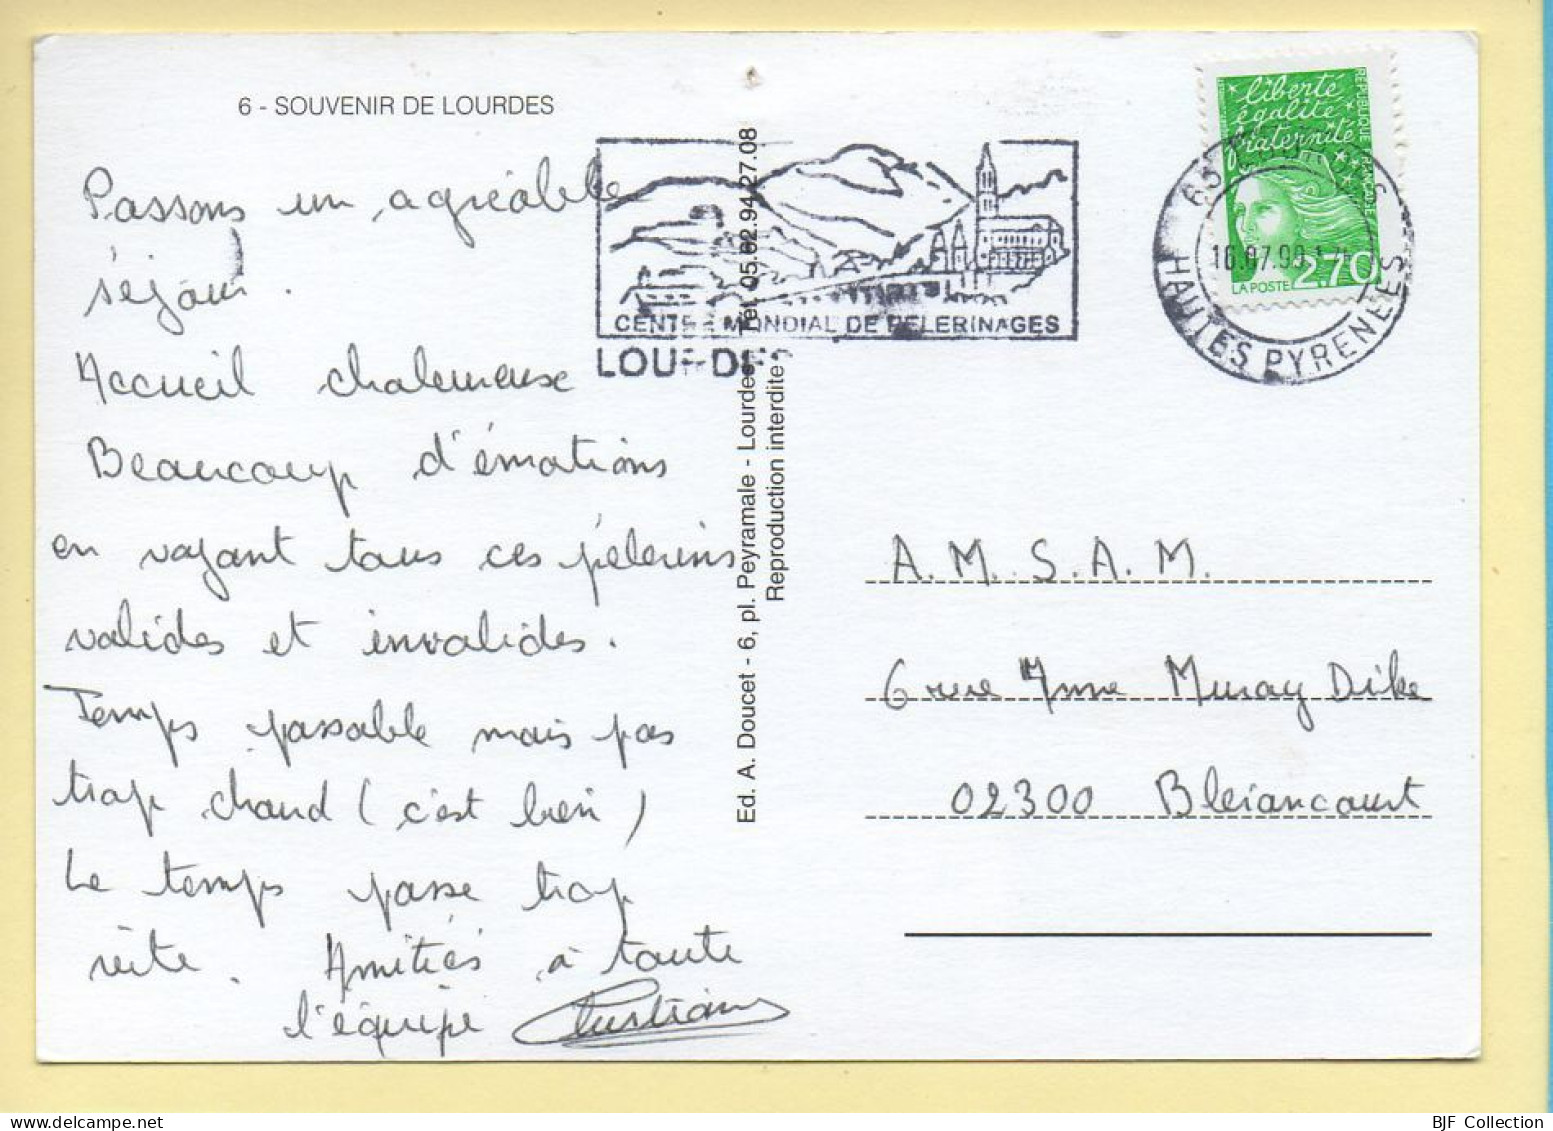 6 - SOUVENIR DE LOURDES
Passons un agréable
séjour.
Accueil chaleureuse
Beaucoup d'émotions
en voyant tous ces pélerins
valides et invalides.
Temps passable mais pas
trop chaud (c'est bien)
Le temps passe trop
vite. Amitiés à toute
l'équipe Christiane
CENTRE MONDIAL DE PELERINAGES
LOURDES
Ed. A. Doucet - 6, pl. Peyramale - Lourdes - Tél. 05.62.94.27.08
Reproduction interdite
liberté
égalité
fraternité
REPUBLIQUE FRANÇAISE
LA POSTE 2,70
65
16.07.99
HAUTES PYRENEES
A.M.S.A.M.
6 rue Anne Muray Dike
02300 Blérancourt
BJF Collection